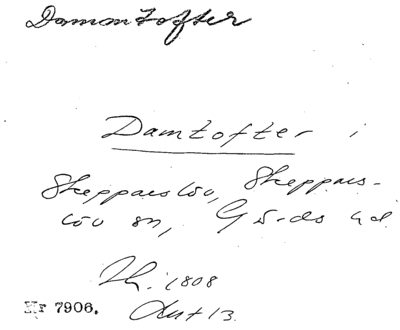 Dammtofter
Damtofter i
Skepparslöv, Skeppars-
löv sn, Gärds hd.
1808
Nr 7906.